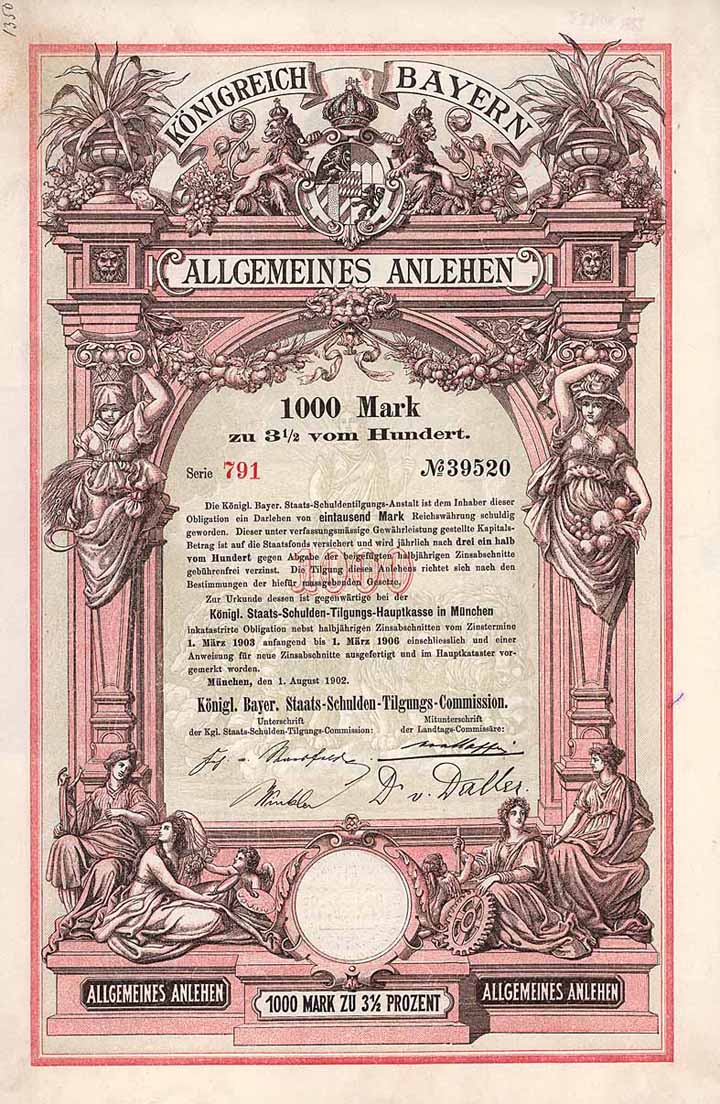 1350
KÖNIGREICH BAYERN
ALLGEMEINES ANLEHEN
1000 Mark
zu 3½ vom Hundert.
Serie 791 No 39520
Die Königl. Bayer. Staats-Schuldentilgungs-Anstalt ist dem Inhaber dieser
Obligation ein Darlehen von eintausend Mark Reichswährung schuldig
geworden. Dieser unter verfassungsmässige Gewährleistung gestellte Kapitals-
Betrag ist auf die Staatsfonds versichert und wird jährlich nach drei ein halb
vom Hundert gegen Abgabe der beigefügten halbjährigen Zinsabschnitte
gebührenfrei verzinst. Die Tilgung dieses Anlehens richtet sich nach den
Bestimmungen der hiefür massgebenden Gesetze.
Zur Urkunde dessen ist gegenwärtige bei der
Königl. Staats-Schulden-Tilgungs-Hauptkasse in München
inkatastrirte Obligation nebst halbjährigen Zinsabschnitten vom Zinstermine
1. März 1903 anfangend bis 1. März 1906 einschliesslich und einer
Anweisung für neue Zinsabschnitte ausgefertigt und im Hauptkataster vor-
gemerkt worden.
München, den 1. August 1902.
Königl. Bayer. Staats-Schulden-Tilgungs-Commission.
Unterschrift Mitunterschrift
der Kgl. Staats-Schulden-Tilgungs-Commission: der Landtags-Commissäre:
Winkler Dr. v. Daller.
1000
ALLGEMEINES ANLEHEN
1000 MARK ZU 3½ PROZENT
ALLGEMEINES ANLEHEN